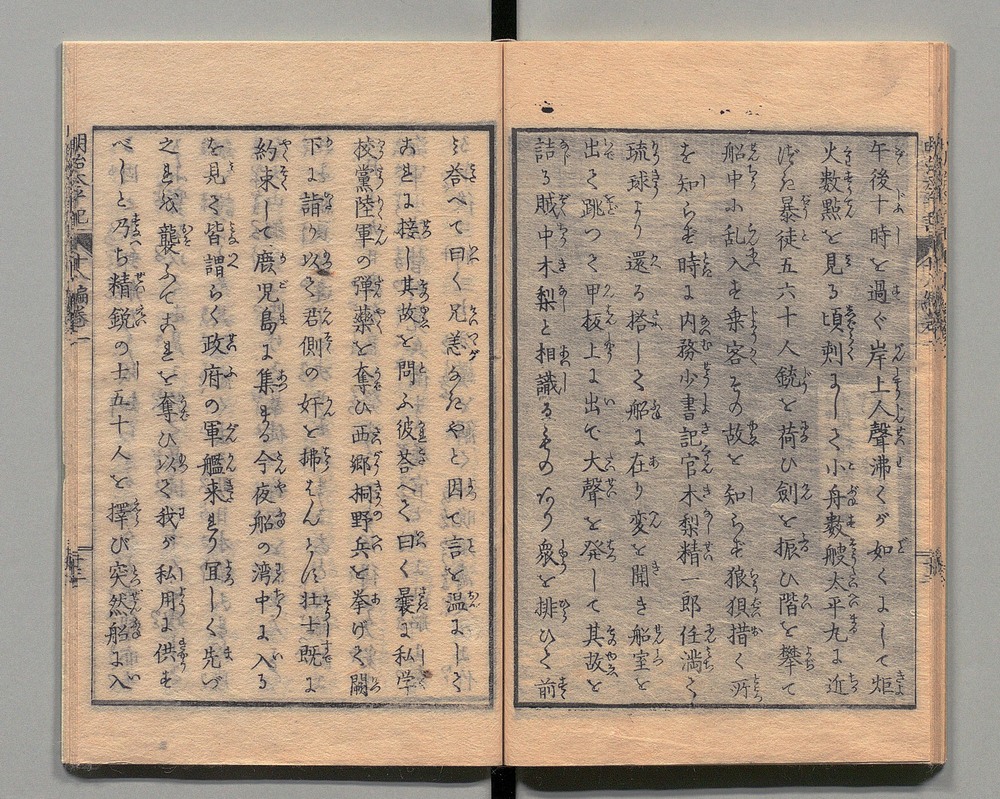 午後十時を過ぐ岸上人聲沸くが如くにして炬
火数點を見る頃刻にして小舟数艘太平丸に近
づき暴徒五六十人銃を荷ひ劍を振ひ階を攀て
船中に乱入す乗客その故を知らず狼狽措く所
を知らず時に内務少書記官木梨精一郎任満て
琉球より還る搭じて船に在り変を聞き船室を
出て跳つて甲板上に出で大聲を発して其故を
詰る賊中木梨と相識るものあり衆を排ひて前
み答へて曰く兄恙なきやと因て言を温にして
これに接し其故を問ふ彼答へて曰く曩に私学
校黨陸軍の弾薬を奪ひ西郷桐野兵を挙げて闕
下に詣り以て君側の奸を掃はんとす壮士既に
約束して鹿児島に集まる今夜船の湾中に入る
を見て皆謂らく政府の軍艦来まり宜しく先づ
之を襲ふてこれを奪ひ以て我が私用に供す
べしと乃ち精鋭の士五十人を擇び突然船に入
明治太平記
十八編巻一